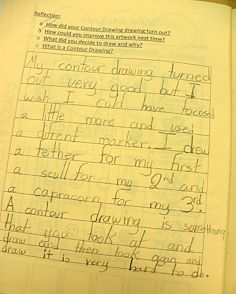 Reflection:
How did your Contour Drawing drawing turn out?
How could you improve this artwork next time?
What did you decide to draw and why?
What is a Contour Drawing?
My contour drawing turned
out very good but I
wish I culd have focosed
a little more and used
a difrent marker. I drew
a fether for my first
a scull for my 2nd and
a capracorn for my 3rd.
A contour drawing is something
that you look at and
draw and then look agin and
draw it is very hard to do.